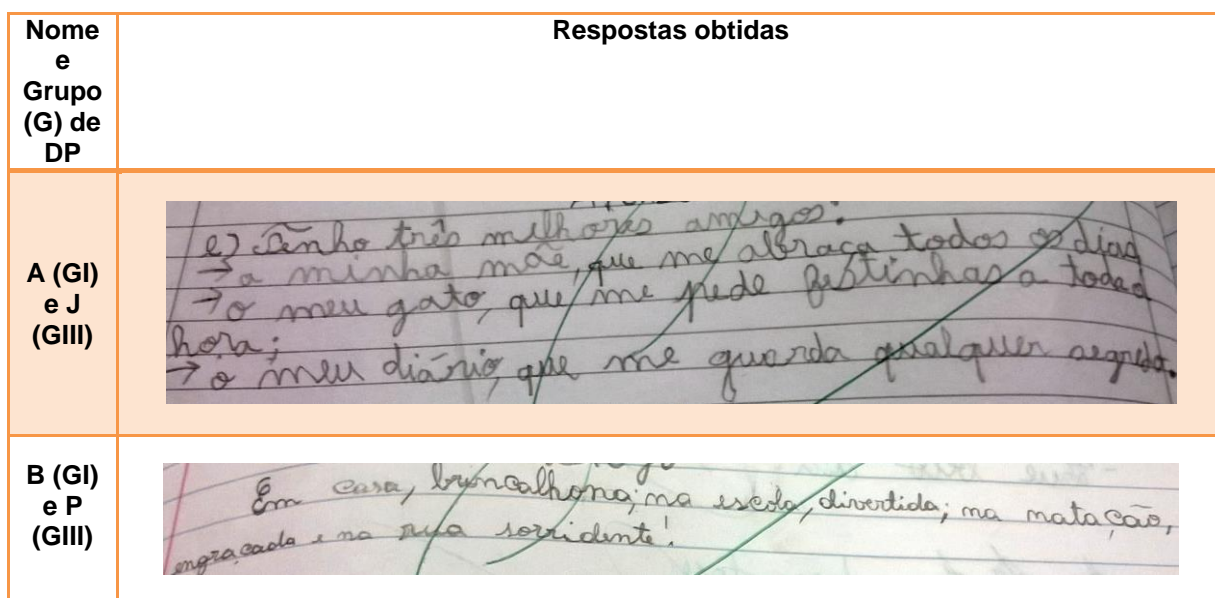 Nome
e
Grupo
(G) de
DP
Respostas obtidas
A (GI)
e J
(GIII)
e) Tenho três melhores amigos:
→ a minha mãe, que me abraça todos os dias
→ o meu gato, que me pede festinhas a toda
hora;
→ o meu diário, que me guarda qualquer segredo.
B (GI)
e P
(GIII)
Em casa, brincalhona; na escola, divertida; na natação,
engraçada e na rua sorridente!